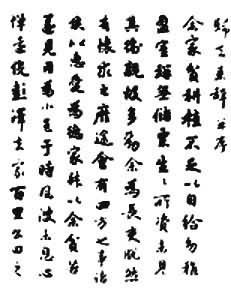 歸去來辭并序
余家貧耕植不足以自給幼稚
盈室缾無儲粟生生所資未見
其術親故多勸余為長吏脫然
有懷求之靡途會有四方之事諸
侯以惠愛為德家叔以余貧苦
遂見用為小邑于時風波未心
憚遠役彭澤去家百里公田之